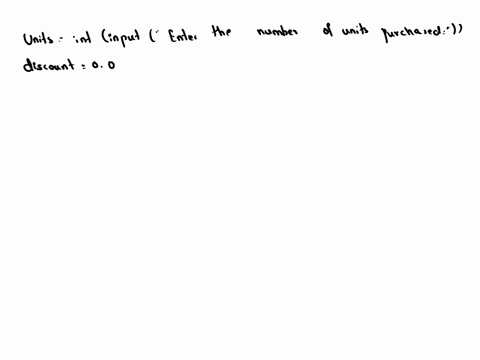 Units = int (input (" Enter the number of units purchased: "))
discount = 0.0